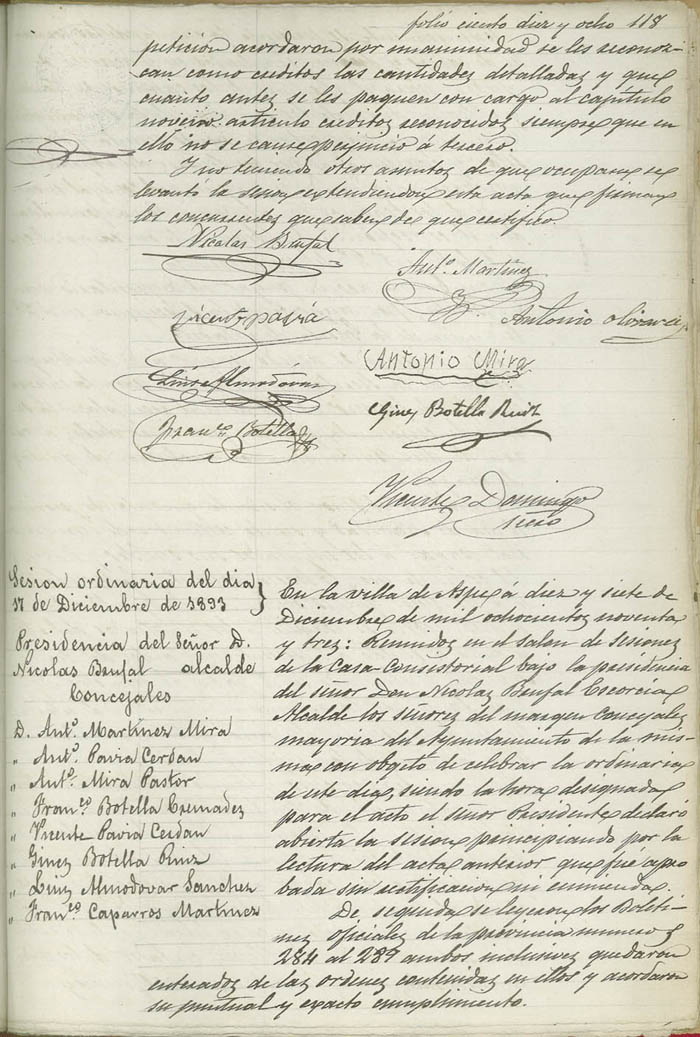 folio ciento diez y ocho 118
peticion acordaron por unanimidad se les reconoz-
can como creditos las cantidades detalladas y que
cuanto antes se les paguen con cargo al capitulo
noveno articulo creditos reconocidos siempre que en
ello no se cause perjuicio á tercero.
Y no teniendo otros asuntos de que ocuparse se
levantó la sesion extendiendose esta acta que firman
los concurrentes que saben de que certifico.
Nicolas Brufal
Ant.º Martinez
Vicente pavia
Antonio
Antonio Mira
Luis Almodóvar
Gines Botella Ruiz
Fran.co Botella
Vicente Domingo
Srio
Sesion ordinaria del dia
17 de Diciembre de 1893
Presidencia del Señor D.
Nicolas Brufal alcalde
Concejales
D. Ant.º Martinez Mira
" Ant.º Pavia Cerdan
" Ant.º Mira Pastor
" Fran.co Botella Cremades
" Vicente Pavia Cerdan
" Ginez Botella Ruiz
" Luiz Almodovar Sanchez
" Fran.co Caparros Martinez
En la villa de Aspe á diez y siete de
Diciembre de mil ochocientos noventa
y trez: Reunidos en el salon de Sesiones
de la Casa-Consistorial bajo la presidencia
del señor Don Nicolaz Brufal Escorcia
Alcalde los señorez del margen Concejalez
mayoria del Ayuntamiento de la mis-
ma con obgeto de celebrar la ordinaria
de este dia, siendo la hora designada
para el acto el señor Presidente declaró
abierta la sesion principiando por la
lectura del acta anterior que fué apro
bada sin rectificacion ni enmienda.
De seguida se leyeron los Boleti-
nez oficiales de la provincia numeros
284 al 289 ambos inclusives quedaron
enterados de las ordenes contenidas en ellos y acordaron
su puntual y exacto cumplimiento.